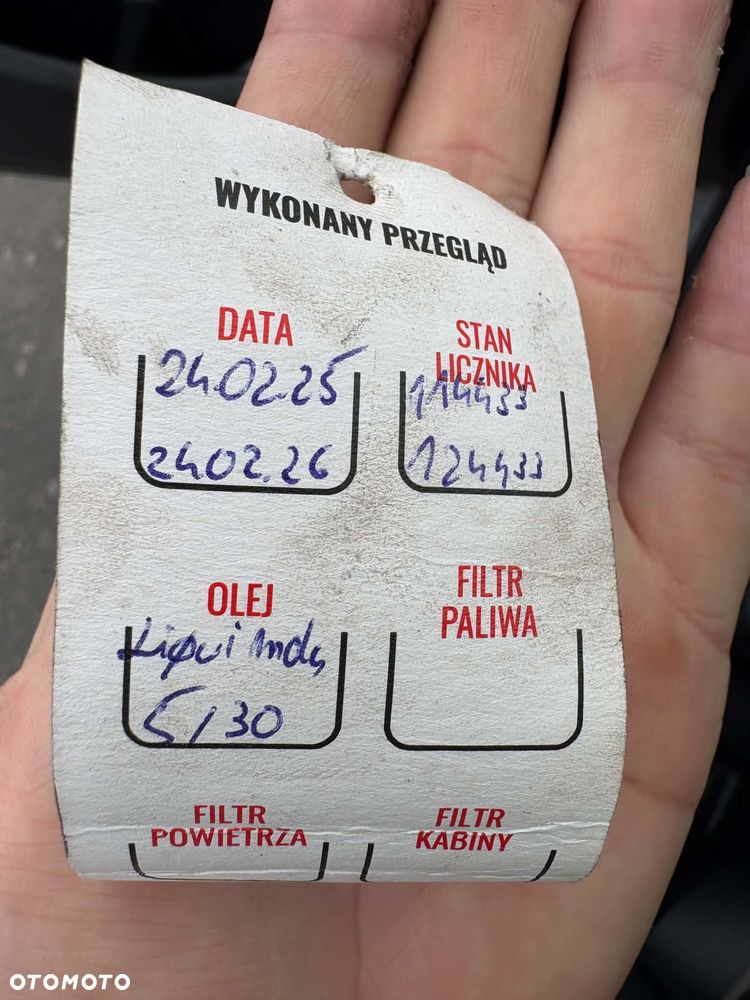 WYKONANY PRZEGLĄD
DATA
24.02.25
24.02.26
STAN
LICZNIKA
114433
124433
OLEJ
Liqui Moly
5/30
FILTR
PALIWA
FILTR
POWIETRZA
FILTR
KABINY
OTOMOTO